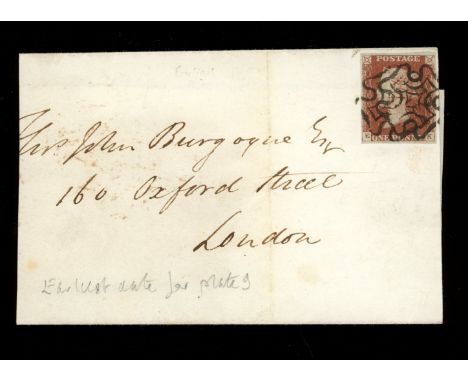 POSTAGE
ONE PENNY
Thos John Burgoyne Esqr
160 Oxford Street
London
Earliest date for plate 9